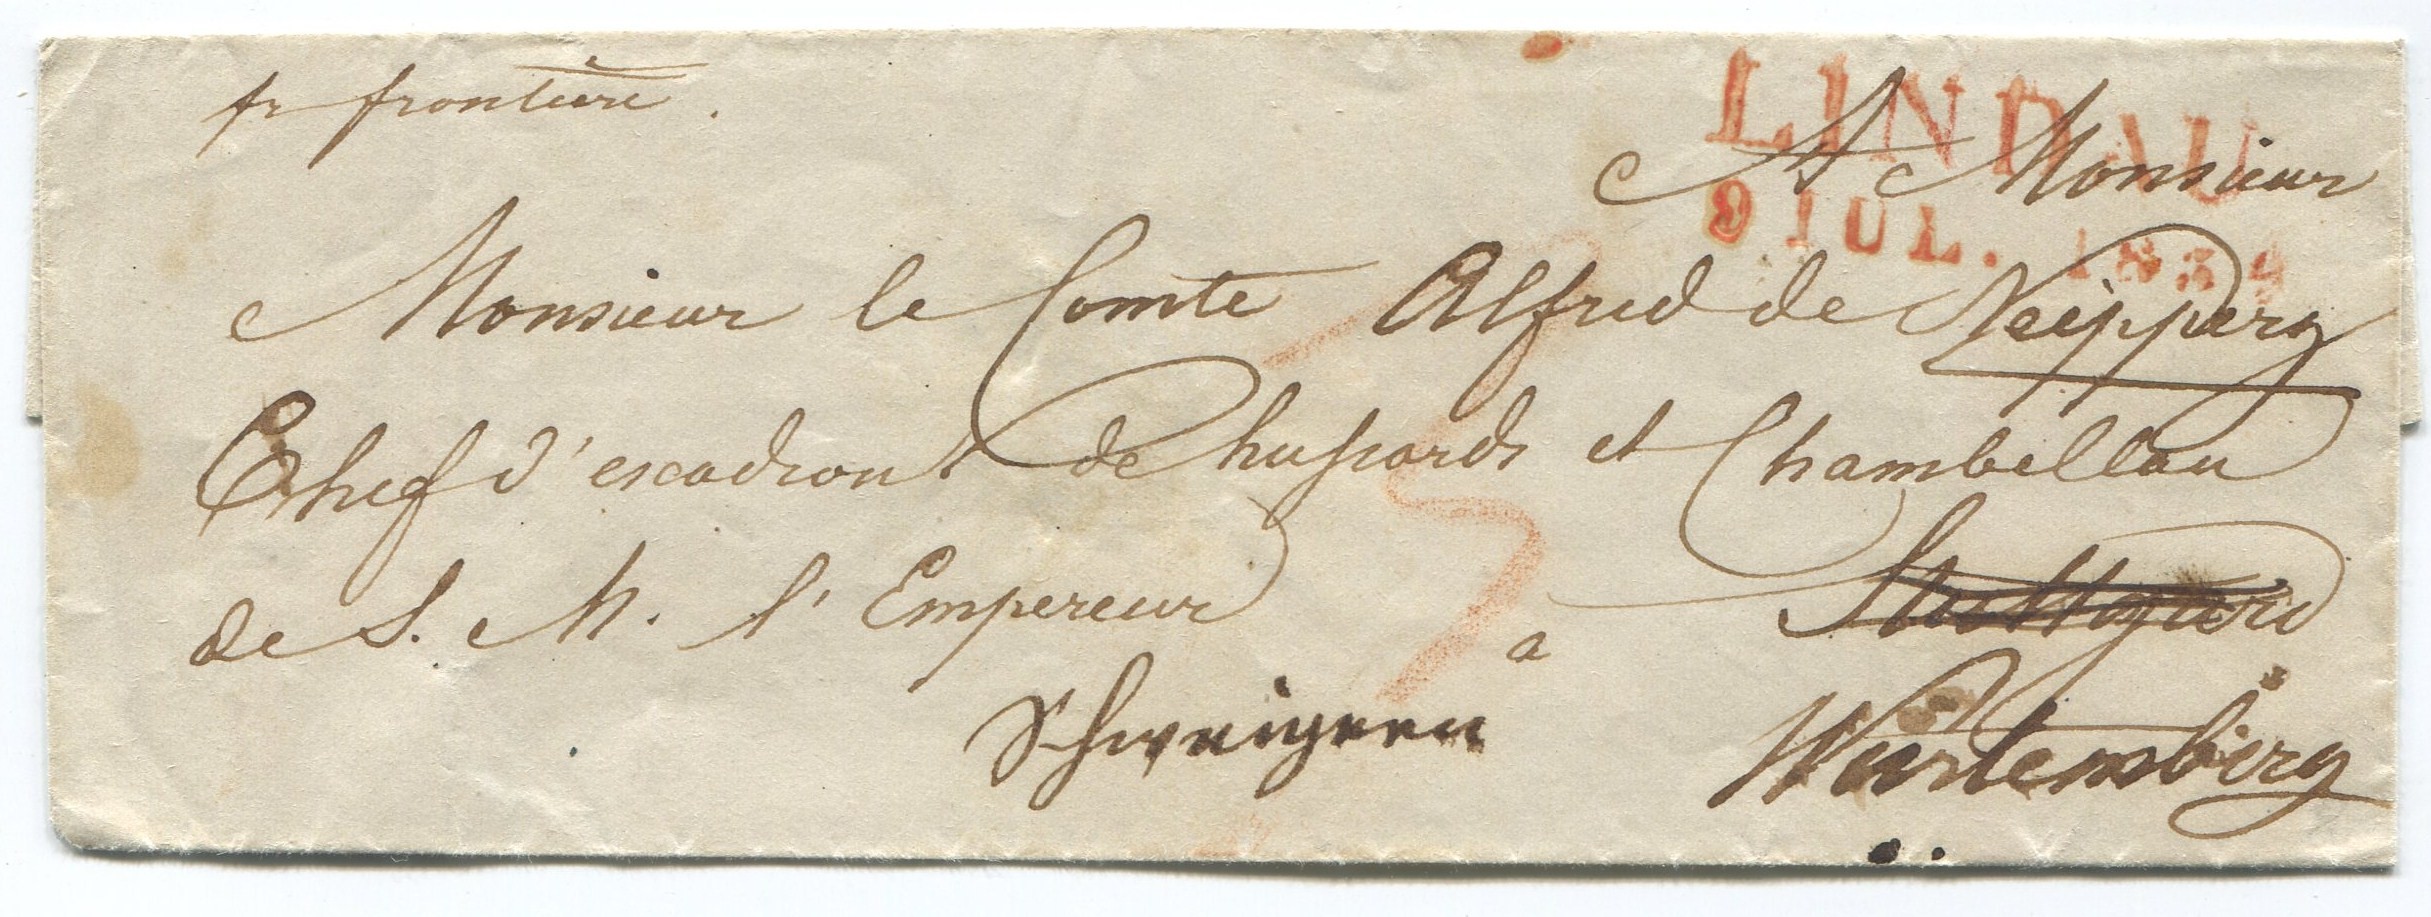 fr frontière.
LINDAU
9 IUL. 1834
A Monsieur
Monsieur le Comte Alfred de Neipperg
Chef d'escadrons de hussards et Chambellan
de S. M. l'Empereur
à Stuttgard
Schwaigern
Würtemberg